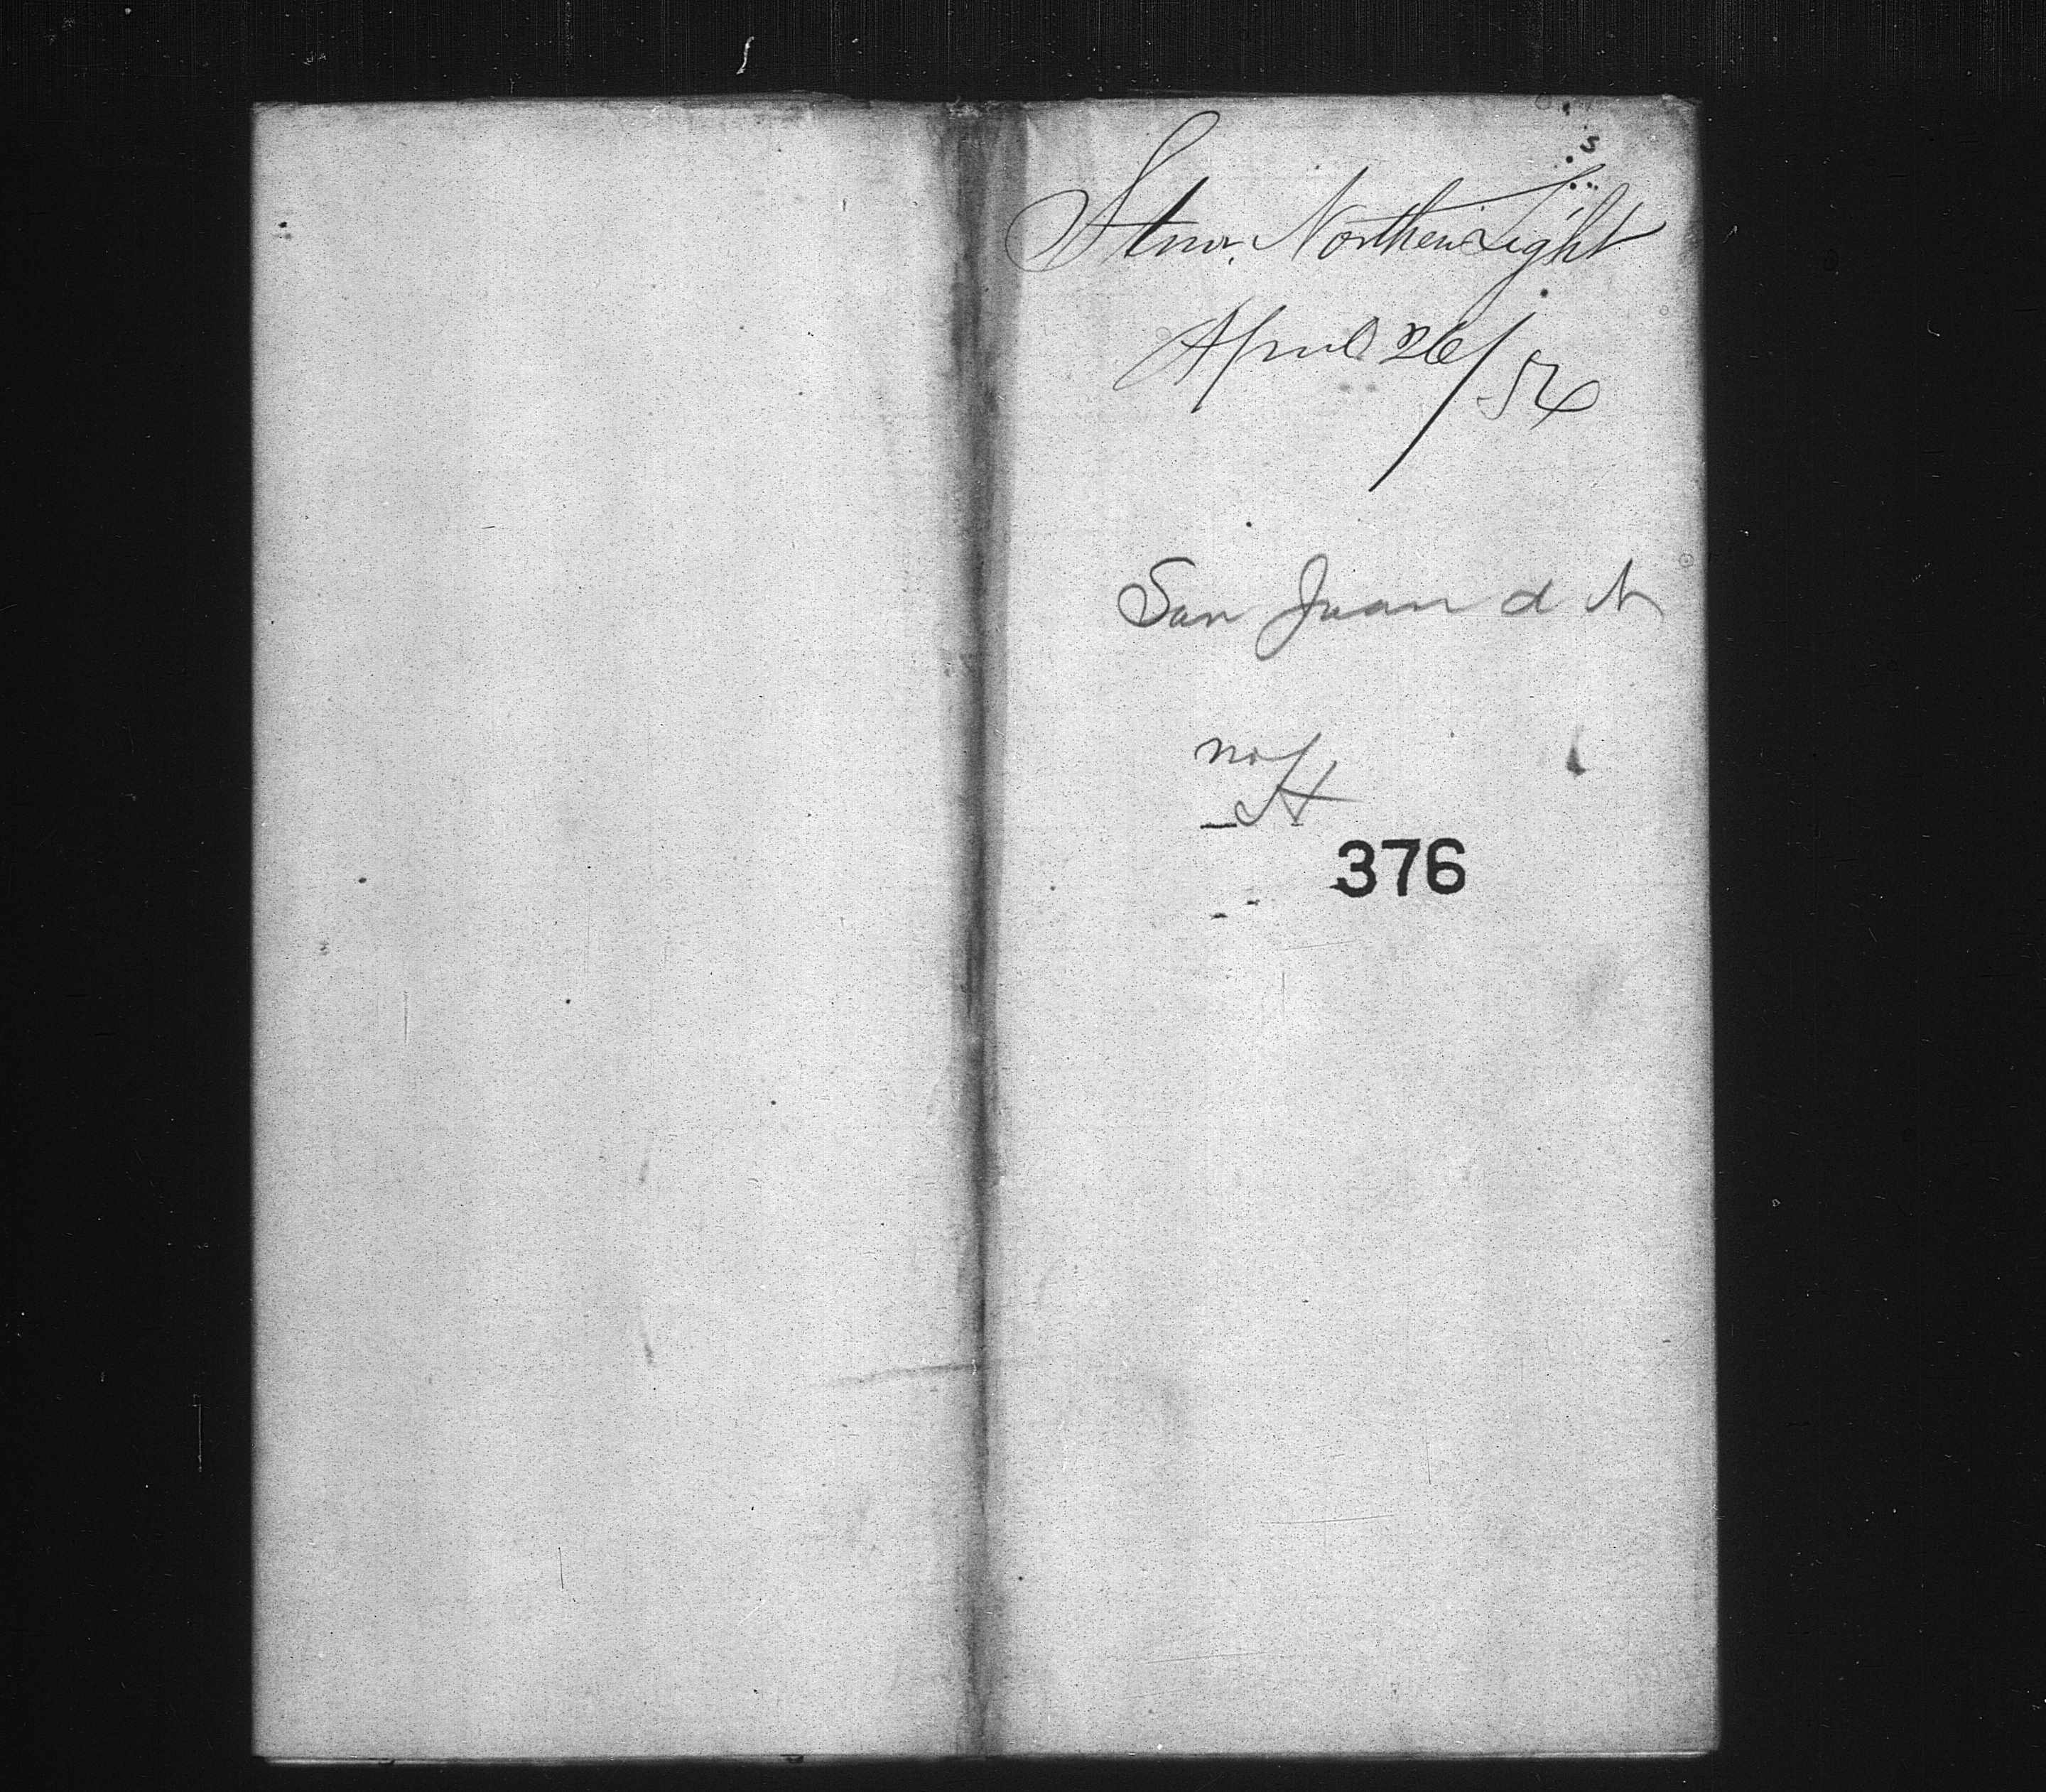 Stmr. Northern Light
April 26/56
San Juan d N
not
376